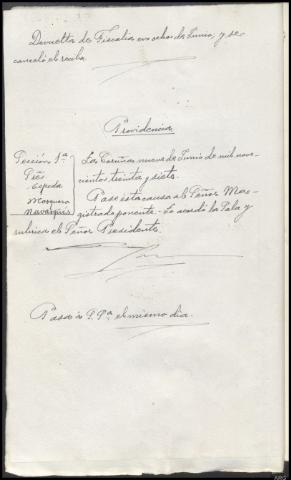 Devuelta de Fiscalia en ocho de Junio, y se
canceló el recibo.
Providencia
Sección 1ª
Sres
Cepeda
Mosquera
Navarrete
La Coruña nueve de Junio de mil nove-
cientos treinta y siete.
Pase esta causa al Señor Ma-
gistrado ponente. Lo acordó la Sala y
rubrica el Señor Presidente.
Pasa á S. Sª el mismo dia.